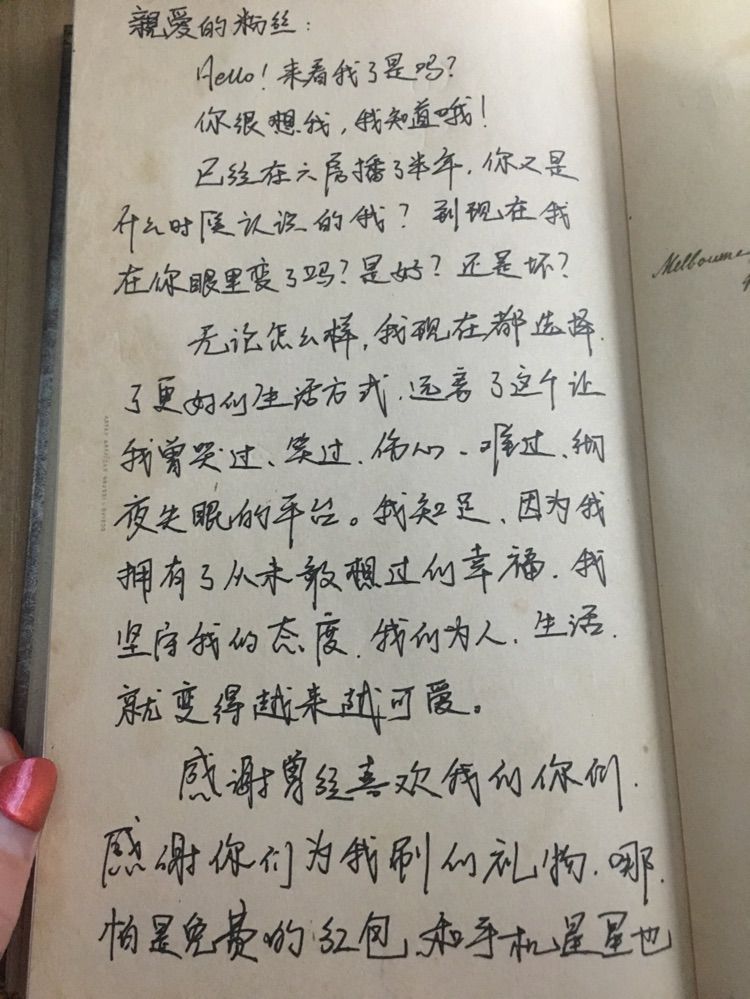 親愛的粉丝：
Hello！来看我了是吗？
你很想我，我知道哦！
已经在六房播了半年，你又是
什么时候认识的我？到现在我
在你眼里变了吗？是好？还是坏？
无论怎么样，我现在都选择
了更好的生活方式，远离了这个让
我曾哭过、笑过、伤心、难过、彻
夜失眠的平台。我知足、因为我
拥有了从未敢想过的幸福，我
坚守我的态度，我的为人，生活
就变得越来越可爱。
感谢曾经喜欢我的你们，
感谢你们为我刷的礼物，哪
怕是免费的红包，和手机星星也
Melbourne